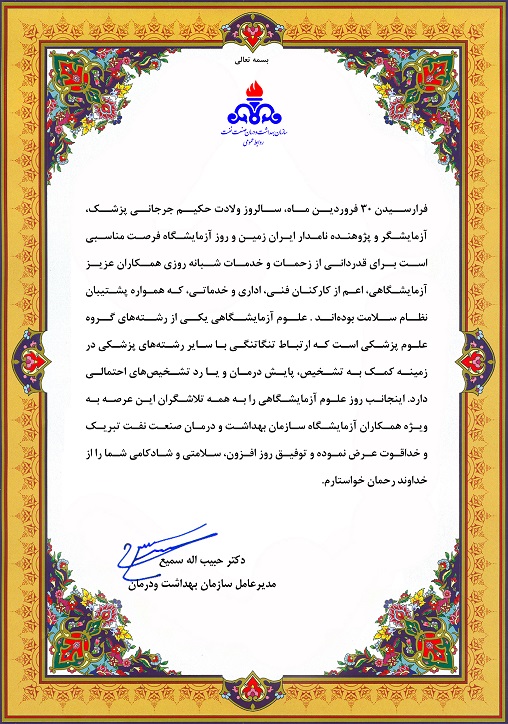 بسمه تعالی
سازمان بهداشت و درمان صنعت نفت
روابط عمومی
فرارسیدن ۳۰ فروردین ماه، سالروز ولادت حکیم جرجانی پزشک،
آزمایشگر و پژوهنده نامدار ایران زمین و روز آزمایشگاه فرصت مناسبی
است برای قدردانی از زحمات و خدمات شبانه روزی همکاران عزیز
آزمایشگاهی، اعم از کارکنان فنی، اداری و خدماتی، که همواره پشتیبان
نظام سلامت بوده‌اند . علوم آزمایشگاهی یکی از رشته‌های گروه
علوم پزشکی است که ارتباط تنگاتنگی با سایر رشته‌های پزشکی در
زمینه کمک به تشخیص، پایش درمان و یا رد تشخیص‌های احتمالی
دارد. اینجانب روز علوم آزمایشگاهی را به همه تلاشگران این عرصه به
ویژه همکاران آزمایشگاه سازمان بهداشت و درمان صنعت نفت تبریک
و خداقوت عرض نموده و توفیق روز افزون، سلامتی و شادکامی شما را از
خداوند رحمان خواستارم.
دکتر حبیب اله سمیع
مدیرعامل سازمان بهداشت ودرمان